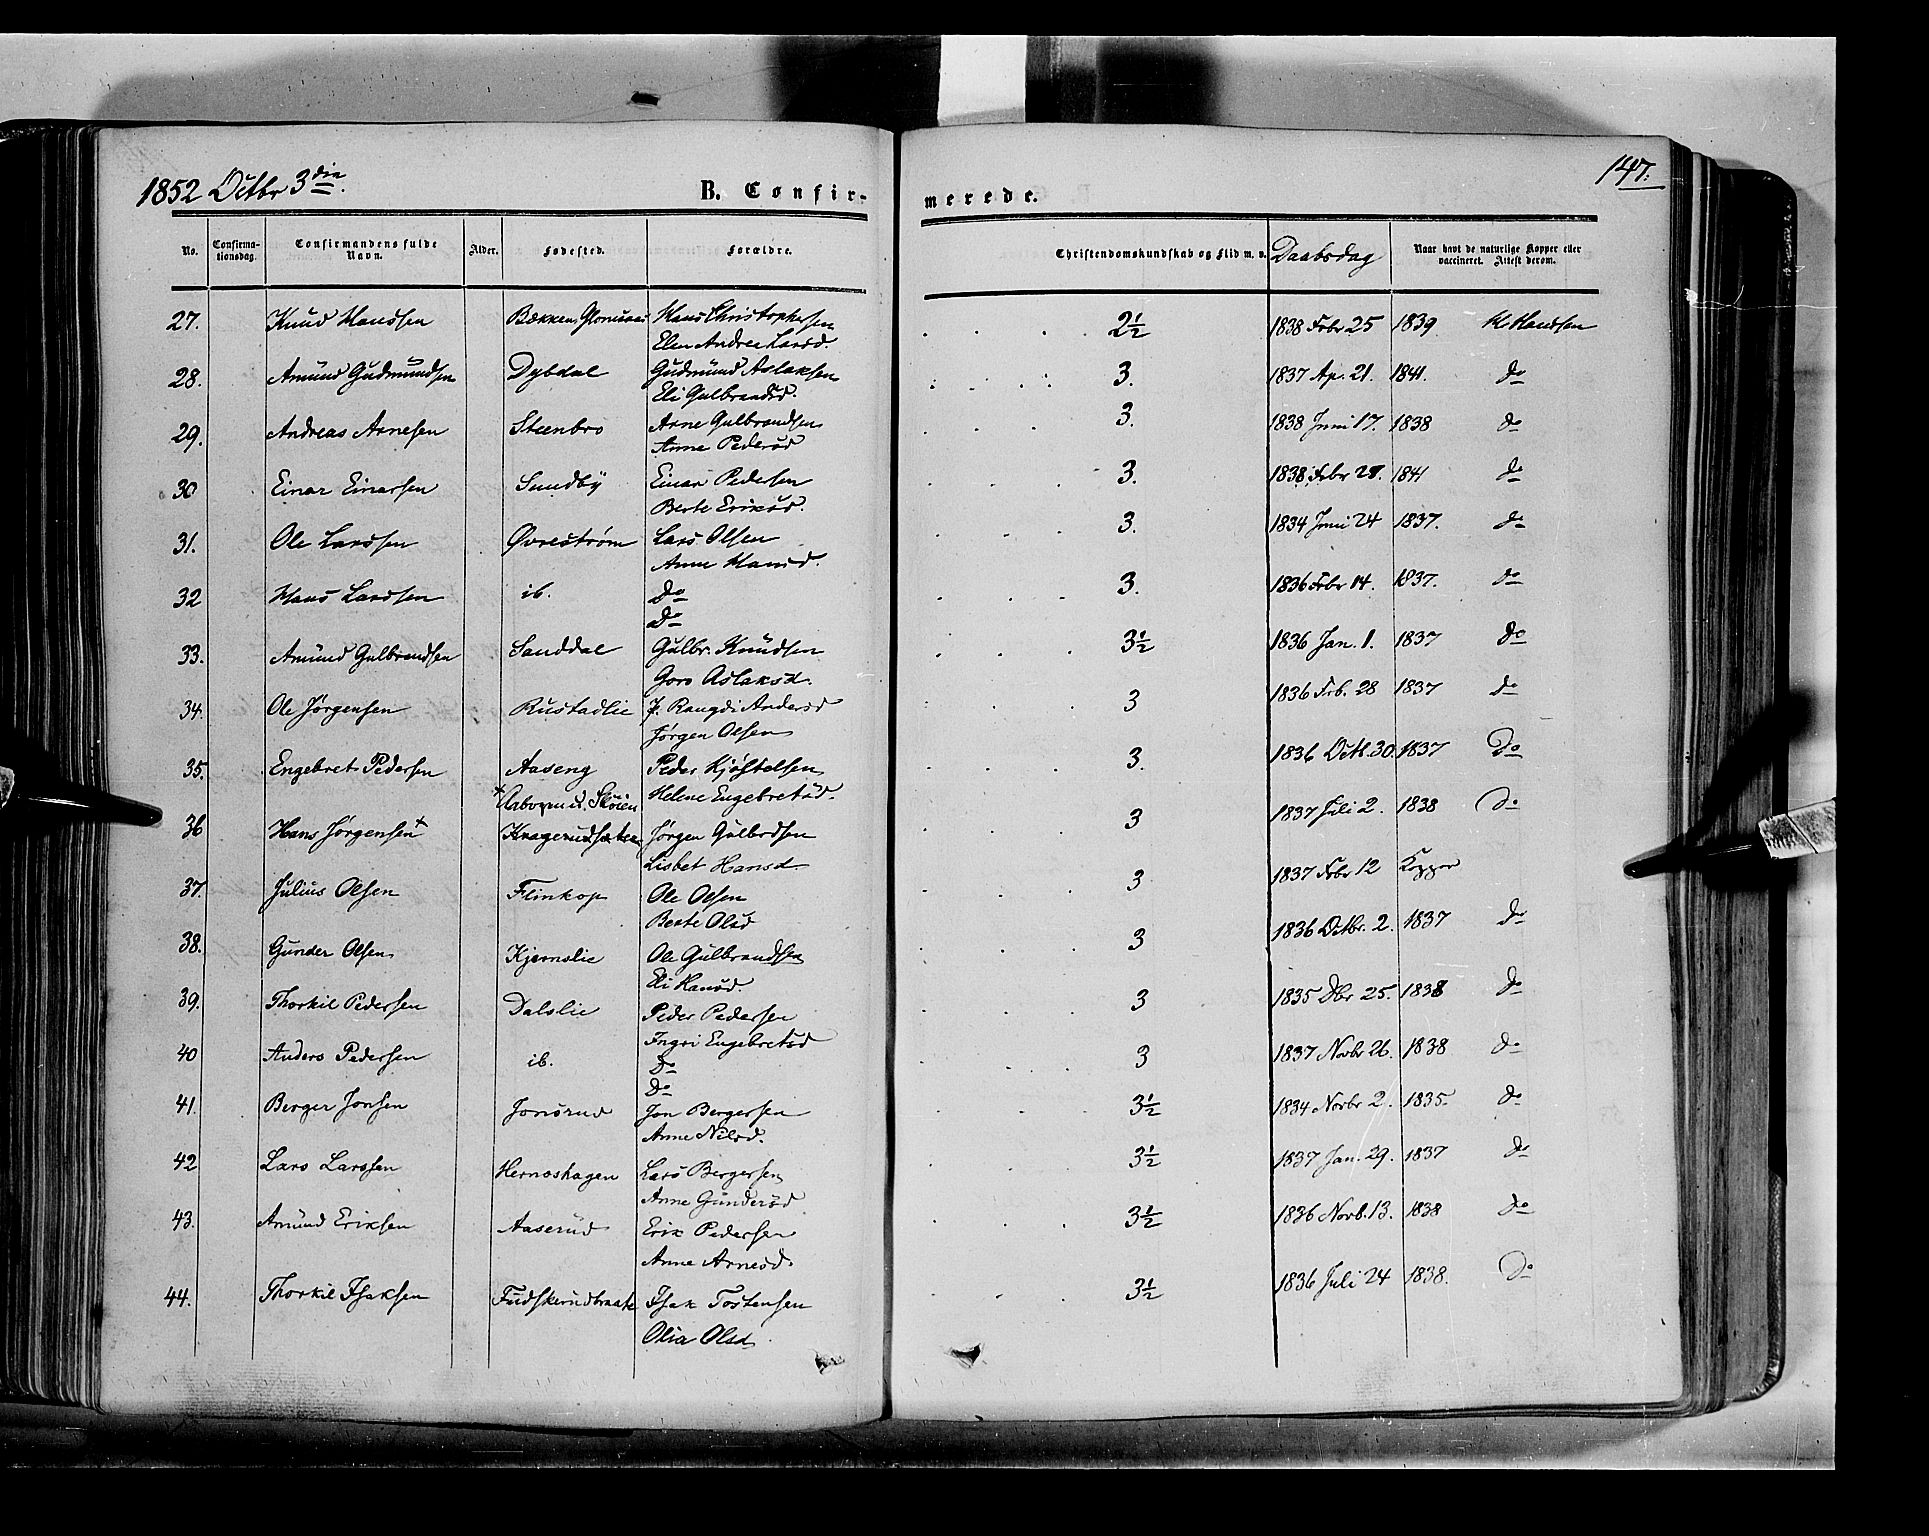 147.
1852 Octbr 3die
B. Confir-
merede.
No. Confirma-tionsdag. Confirmandens fulde Navn. Alder. Fødested. Forældre. Christendomskundskab og Flid m. v. Daabsdag Naar havt de naturlige Kopper eller vaccineret. Attest derom.
27. Knud Hansen Bekken, Hans Christophersen 2½ 1838 Febr 25 1839 K Handsen
Elen Andrea Larsd.
28. Amund Gudmundsen Dybdal Gudmund Aslaksen 3. 1837 Ap. 21. 1841. do
Eli Gulbrandsd.
29. Andreas Arnesen Steenbro Arne Gulbrandsen 3. 1838 Juni 17. 1838 do
Anne Pedersd
30 Einar Einarsen Sundby Einar Pedersen 3. 1838 Febr 1841 do
Berte Eriksd.
31. Ole Larssen Øvrestrøm Lars Olsen 3. 1834 Juni 24 1837. do
Anne Hansd.
32 Hans Larssen ib. Do 3. 1836 Febr 14. 1837. do
Do
33. Amund Gulbrandsen Sanddal Gulbr. Knudsen 3½ 1836 Jan. 1. 1837 do
Goro Aslaksd.
34. Ole Jørgensen Rustadlie P. Rangdi Andersd 3 1836 Feb. 28 1837 do
Jørgen Olsen
35. Engebret Pedersen Aaseng Peder Kjøstelsen 3. 1836 Octb. 30. 1837 Do
Helene Engebretsd.
× Skøien
36 Hans Jørgensen × Kragerudsæter Jørgen Gulbrdsen 3 1837 Juli 2. 1838 Do
Lisbet Hansd.
37. Julius Olsen Flinkop Ole Olsen 3 1837 Febr 12 Kopper
Berte Olsd
38. Gunder Olsen Kjernslie Ole Gulbrandsen 3 1836 Octbr. 2. 1837 do
Eli Hansd.
39. Thorkil Pedersen Dalslie Peder Pedersen 3 1835 Dbr 25. 1838 do
Ingri Engebretsd
40 Anders Pedersen ib. Do 3 1837 Novbr 26. 1838 do
Do
41. Berger Jonsen Jonsrud Jon Bergersen 3½ 1834 Novbr 2. 1835. do
Anne Nilsd.
42 Lars Larssen Herneshagen Lars Bergersen 3½ 1837 Jan. 29. 1837 do
Anne Gundersd
43. Amund Eriksen Aaserud Erik Pedersen 3½ 1836 Novb. 13. 1838 do
Anne Arnesd.
44. Thorkil Isaksen Fudskerudbraate Isak Tostensen 3½ 1836 Juli 24 1838. Do
Olia Olsd.